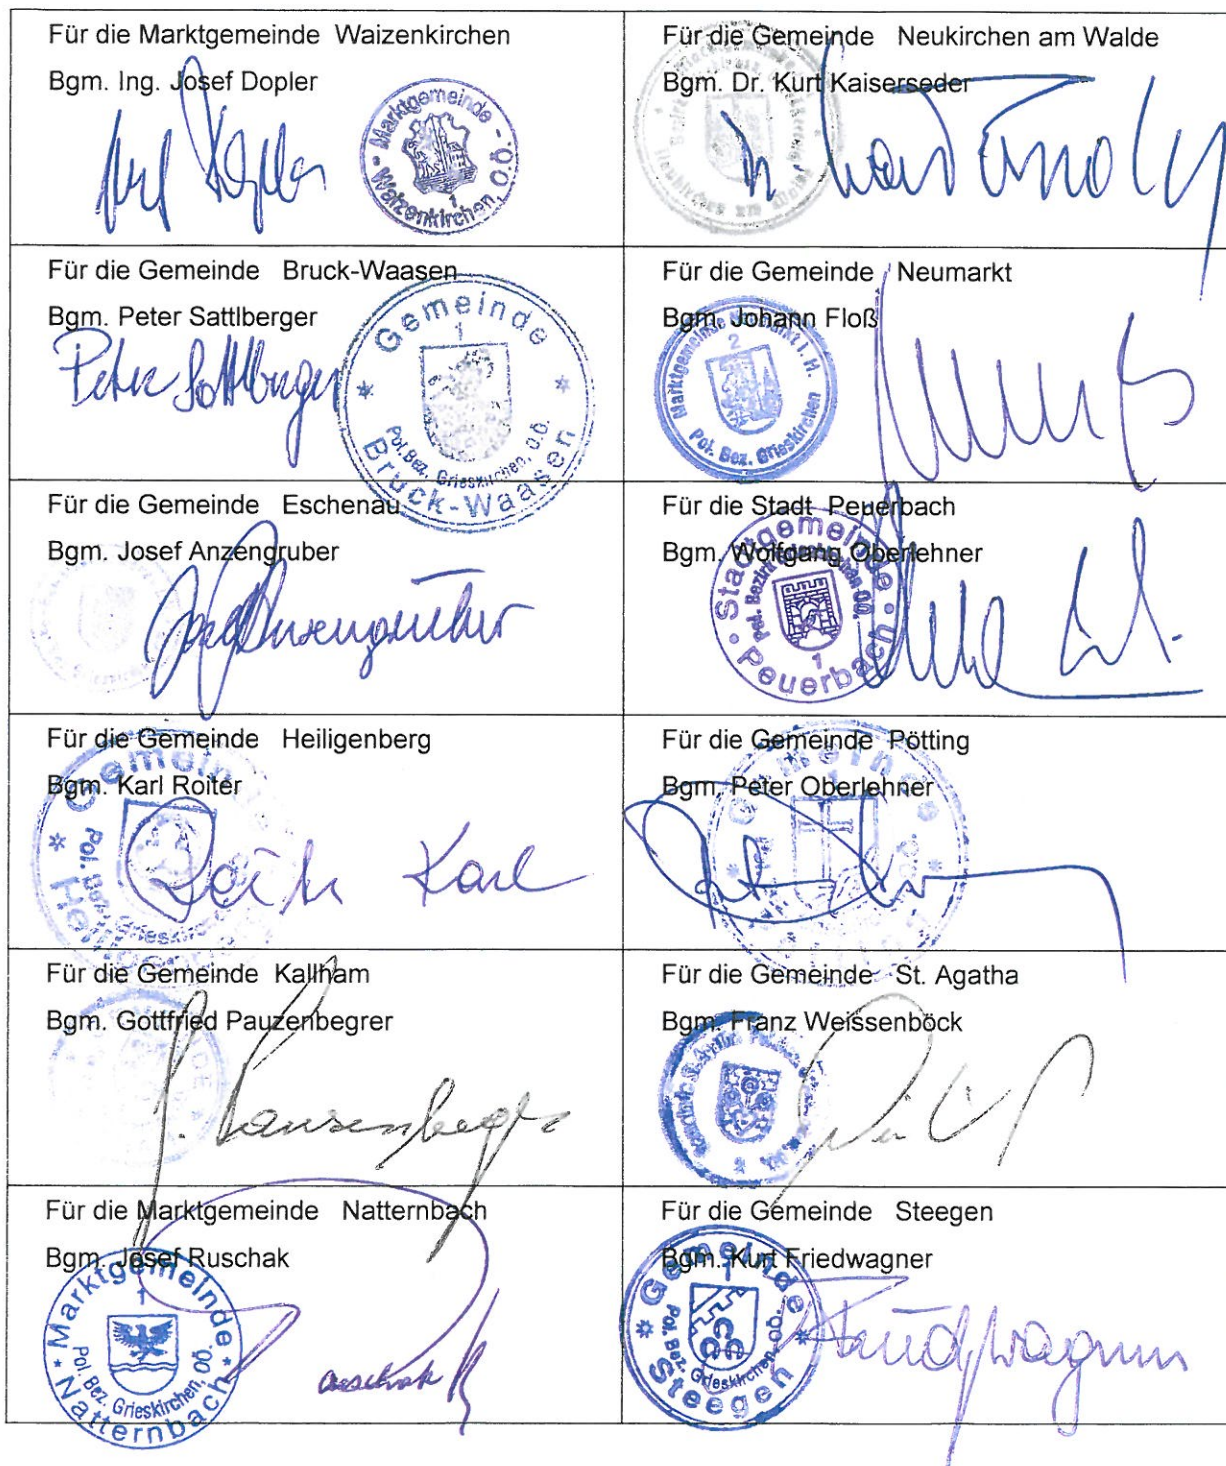 Für die Marktgemeinde Waizenkirchen
Bgm. Ing. Josef Dopler
Marktgemeinde - Waizenkirchen, O.Ö.
1
Für die Gemeinde Neukirchen am Walde
Bgm. Dr. Kurt Kaiserseder
Für die Gemeinde Bruck-Waasen
Bgm. Peter Sattlberger
Peter Sattlberger
Gemeinde
1
Pol. Bez. Grieskirchen, O.Ö.
Bruck-Waasen
Für die Gemeinde Neumarkt
Bgm. Johann Floß
Marktgemeinde Neumarkt i. H.
2
Pol. Bez. Grieskirchen
Für die Gemeinde Eschenau
Bgm. Josef Anzengruber
Josef Anzengruber
Für die Stadt Peuerbach
Bgm. Wolfgang Oberlehner
Stadtgemeinde
Pol. Bezirk Grieskirchen OÖ.
1
Peuerbach
Für die Gemeinde Heiligenberg
Bgm. Karl Roiter
Gemeinde
Pol. Bez. Grieskirchen
Heiligenberg
Karl
Für die Gemeinde Pötting
Bgm. Peter Oberlehner
Gemeinde
1
Für die Gemeinde Kallham
Bgm. Gottfried Pauzenbegrer
Für die Gemeinde St. Agatha
Bgm. Franz Weissenböck
Für die Marktgemeinde Natternbach
Bgm. Josef Ruschak
Marktgemeinde
1
Pol. Bez. Grieskirchen, OÖ.
Natternbach
Für die Gemeinde Steegen
Bgm. Kurt Friedwagner
Gemeinde
1
Pol. Bez. Grieskirchen, OÖ.
Steegen
Friedwagner